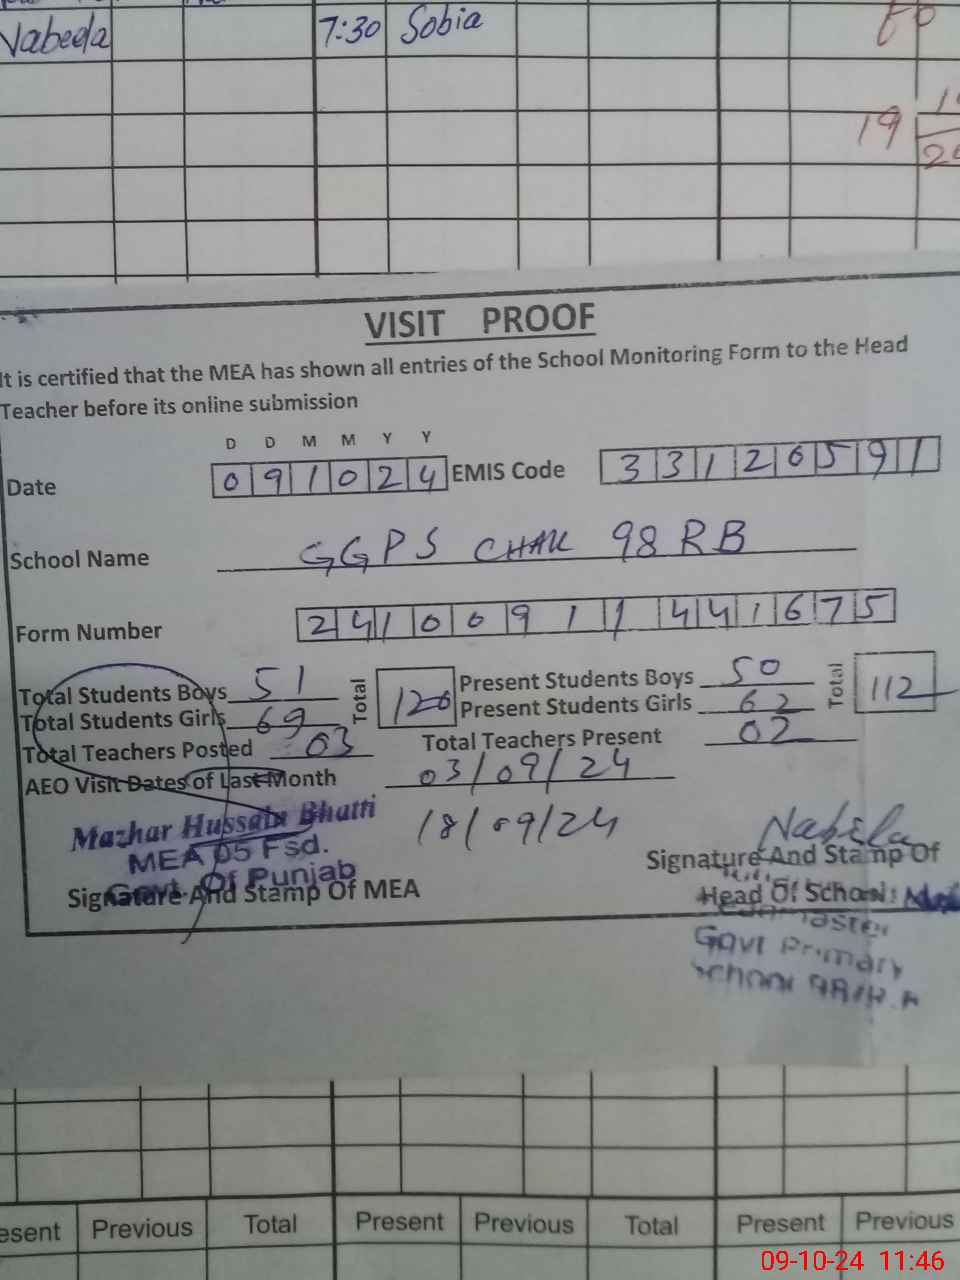 Nabeela 7:30 Sobia
19
VISIT PROOF
It is certified that the MEA has shown all entries of the School Monitoring Form to the Head
Teacher before its online submission
D D M M Y Y
Date 0 9 1 0 2 4 EMIS Code 3 3 1 2 0 0 5 9 1
School Name GGPS CHAK 98 RB
Form Number 2 4 1 0 0 9 1 1 4 4 1 6 7 5
Total Students Boys 51 Total 120 Present Students Boys 50 Total 112
Total Students Girls 69 Present Students Girls 62
Total Teachers Posted 03 Total Teachers Present 02
AEO Visit Dates of Last Month 03/09/24
18/09/24
Mazhar Hussain Bhatti
MEA 05 Fsd.
Govt. Of Punjab
Signature And Stamp Of MEA
Nabila
Signature And Stamp Of
Head Of School
Govt Primary
School 98/R.B
esent Previous Total Present Previous Total Present Previous
09-10-24 11:46